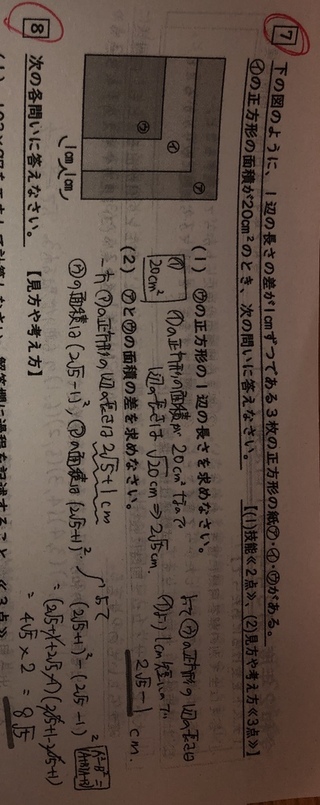 7 下の図のように、1辺の長さの差が1cmずつである3枚の正方形の紙㋐・㋑・㋒がある。
㋑の正方形の面積が20cm²のとき、次の問いに答えなさい。 【(1)技能≪2点≫、(2)見方や考え方≪3点≫】
㋒
㋑
㋐
1cm 1cm
(1) ㋒の正方形の1辺の長さを求めなさい。
㋑ 20cm²
㋑の正方形の面積が20cm²なので
1辺の長さは √20cm ⇒ 2√5cm.
よって㋒の正方形の1辺の長さは
㋑より1cm短いので
2√5-1 cm.
(2) ㋐と㋒の面積の差を求めなさい。
一方㋐の正方形の1辺の長さは 2√5+1cm
㋒の面積は(2√5-1)², ㋐の面積は(2√5+1)²
よって
(2√5+1)²-(2√5-1)²
A²-B²=(A+B)(A-B)
=(2√5+1+2√5-1)(2√5+1-2√5+1)
=4√5×2 =8√5
8 次の各問いに答えなさい。 【見方や考え方】